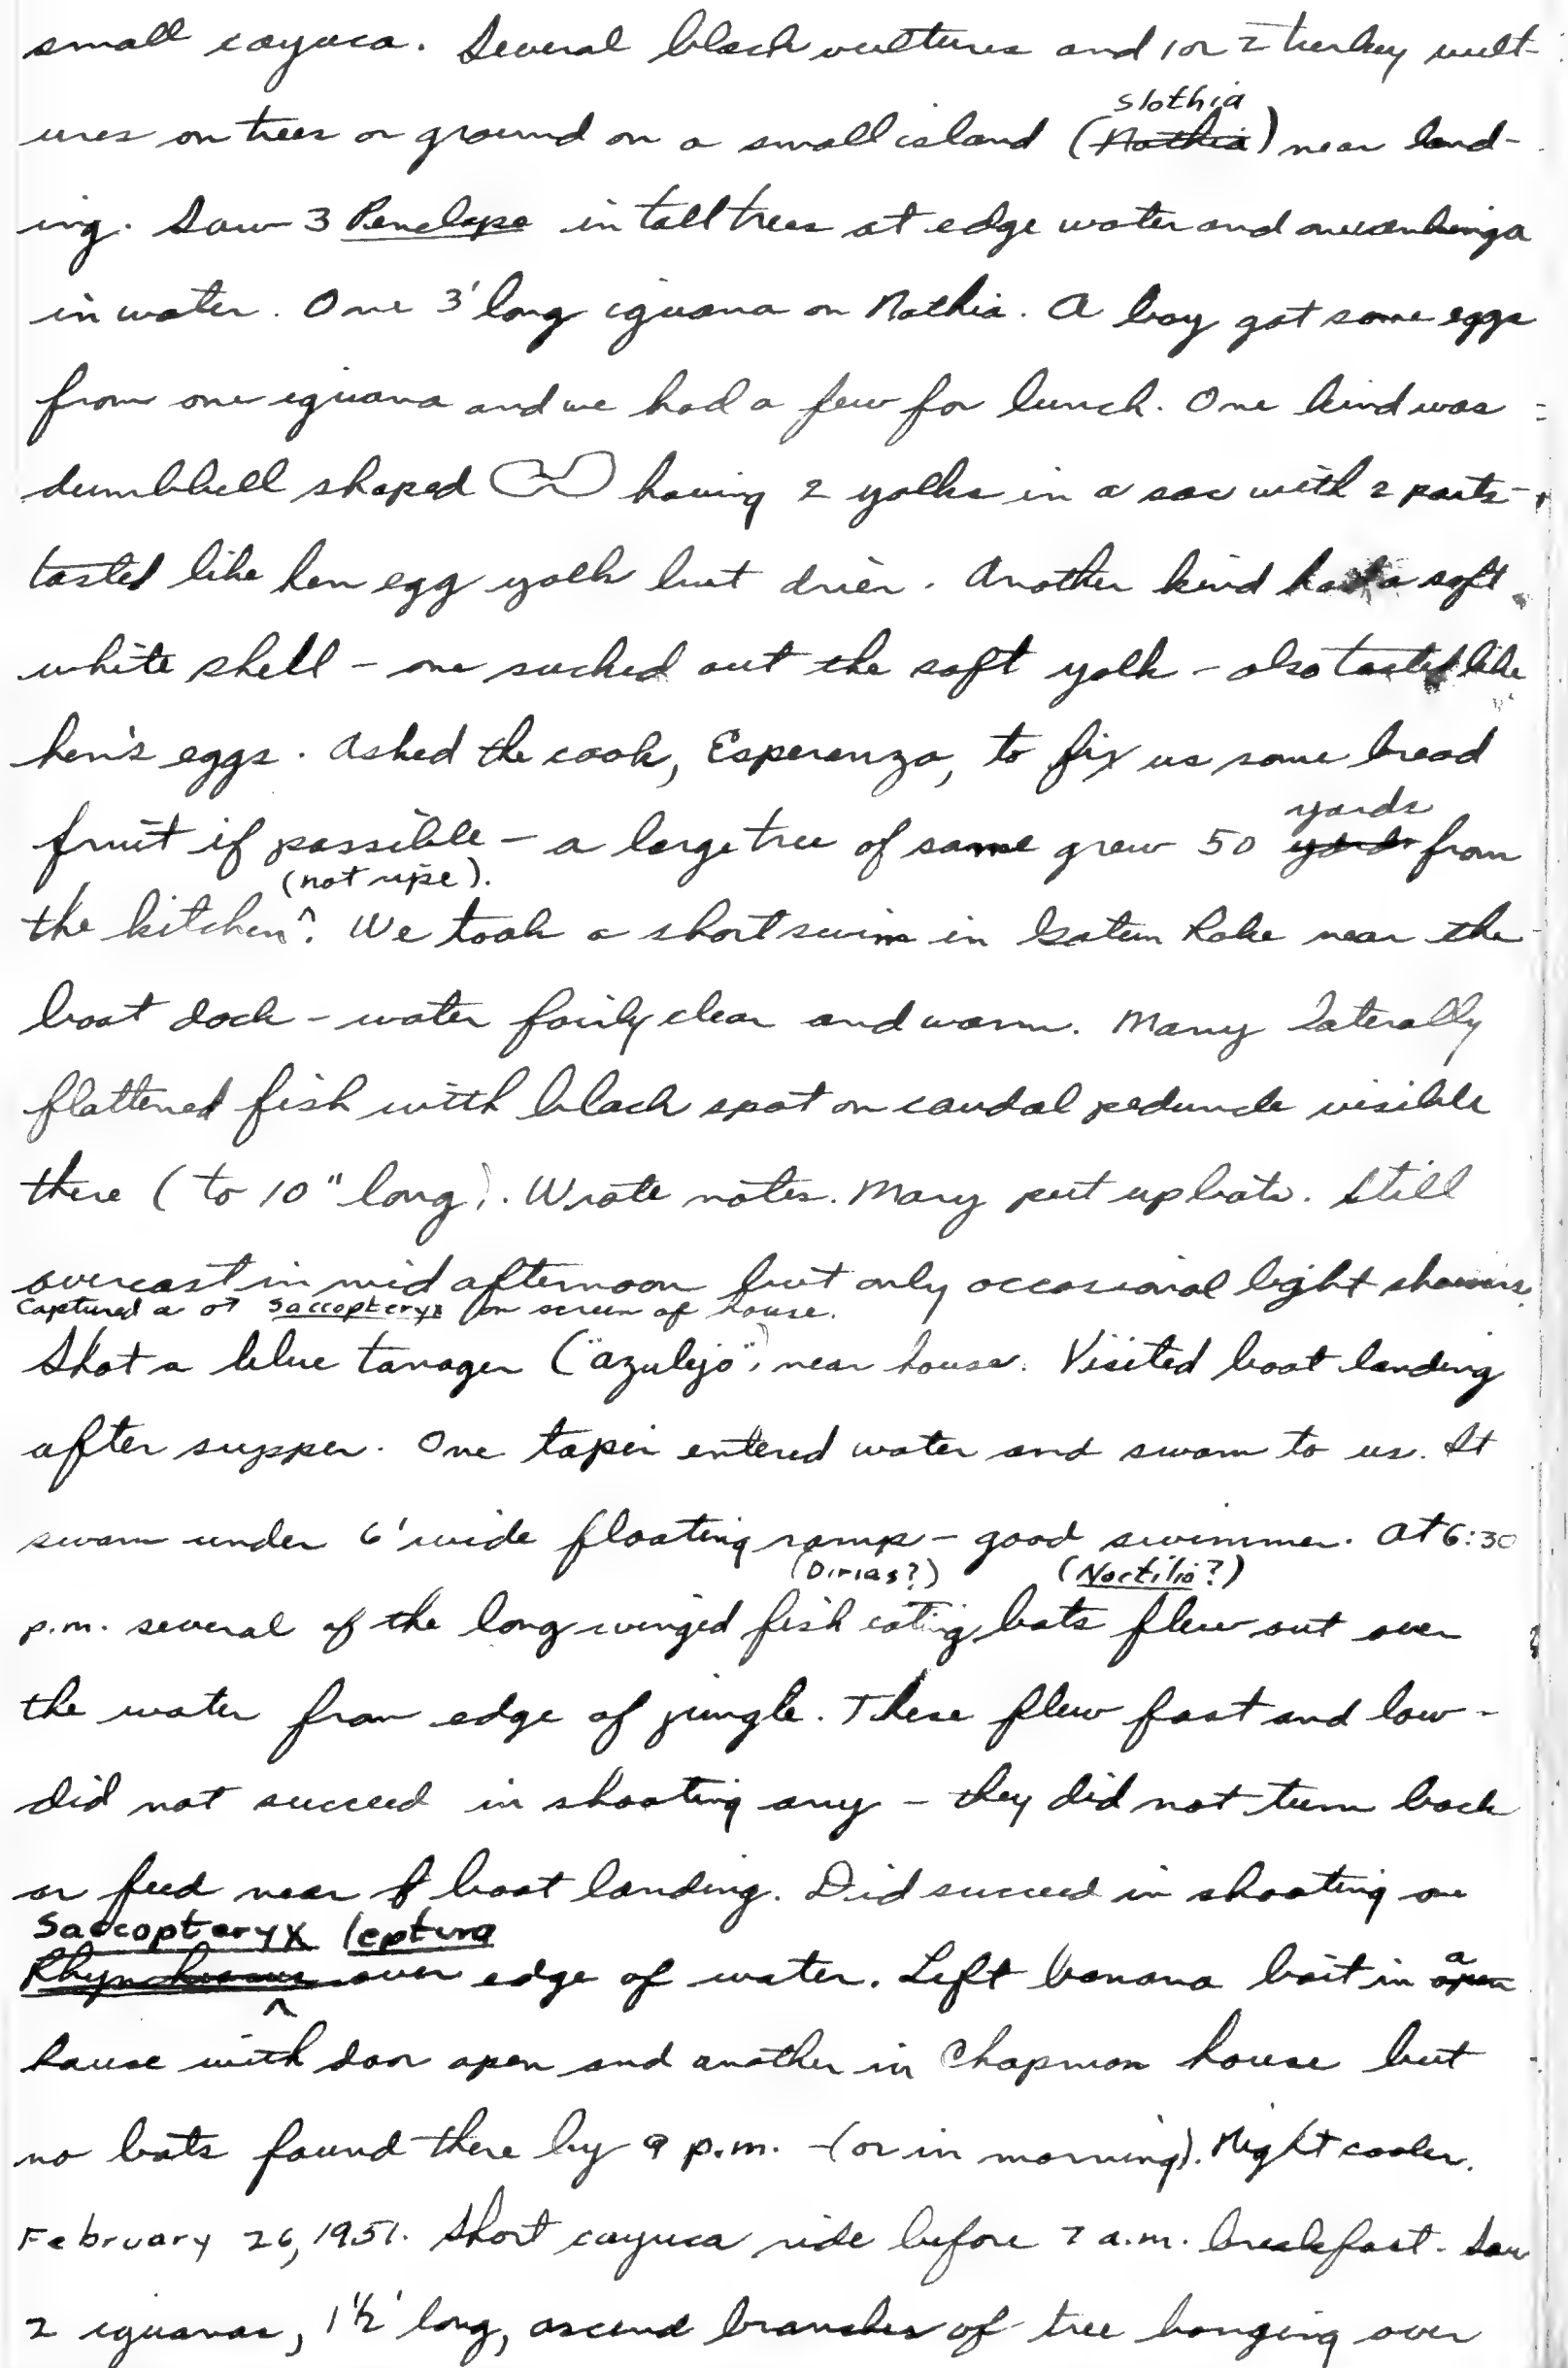 small cayuca. Several black vultures and 1 or 2 turkey vult-
slothia
ures on trees or ground on a small island (Nathia) near land-
ing. Saw 3 Penelope in tall trees at edge water and one anhinga
in water. One 3' long iguana on Nathia. A boy got some eggs
from one iguana and we had a few for lunch. One kind was
dumbbell shaped having 2 yolks in a sac with 2 parts -
tasted like hen egg yolk but drier. Another kind had a soft
white shell - one sucked out the soft yolk - also tasted like
hen's eggs. Asked the cook, Esperanza, to fix us some bread
yards
fruit if possible - a large tree of same grew 50 yards from
(not ripe).
the kitchen^. We took a short swim in Gatun Lake near the
boat dock - water fairly clear and warm. Many laterally
flattened fish with black spot on caudal peduncle visible
there (to 10" long). Wrote notes. Mary put up bats. Still
overcast in mid afternoon but only occasional light showers.
Captured a ♂ Saccopteryx on screen of house.
Shot a blue tanager ("azulejo") near house. Visited boat landing
after supper. One tapir entered water and swam to us. It
swam under 6' wide floating ramp - good swimmer. At 6:30
(Dirias?) (Noctilio?)
p.m. several of the long winged fish eating bats flew out over
the water from edge of jungle. These flew fast and low -
did not succeed in shooting any - they did not turn back
or feed near boat landing. Did succeed in shooting one
Saccopteryx leptura
over edge of water. Left banana bait in a open
house with door open and another in Chapman house but
no bats found there by 9 p.m. - (or in morning). Night cooler.
February 26, 1951. Short cayuca ride before 7 a.m. breakfast. Saw
2 iguanas, 1 1/2' long, ascend branches of tree hanging over